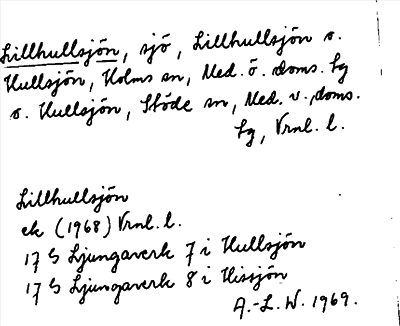 Lillhullsjön, sjö, Lillhullsjön o.
Hullsjön, Holms sn, Med. ö. doms. lg
o. Hullsjön, Stöde sn, Med. v. doms.
lg, Vrnl. l.
Lillhullsjön
ek (1968) Vrnl. l.
17 G Ljungaverk 7 i Hullsjön
17 G Ljungaverk 8 i Hissjön
A.-L. W. 1969.